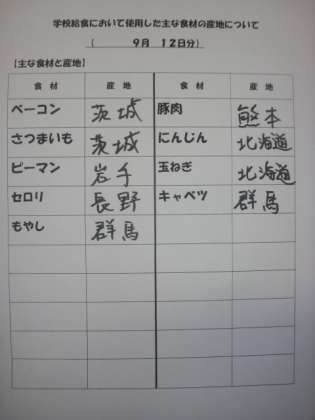 学校給食において使用した主な食材の産地について
( 9月 12日分)
【主な食材と産地】
食材 産地 食材 産地
ベーコン 茨城 豚肉 熊本
さつまいも 茨城 にんじん 北海道
ピーマン 岩手 玉ねぎ 北海道
セロリ 長野 キャベツ 群馬
もやし 群馬